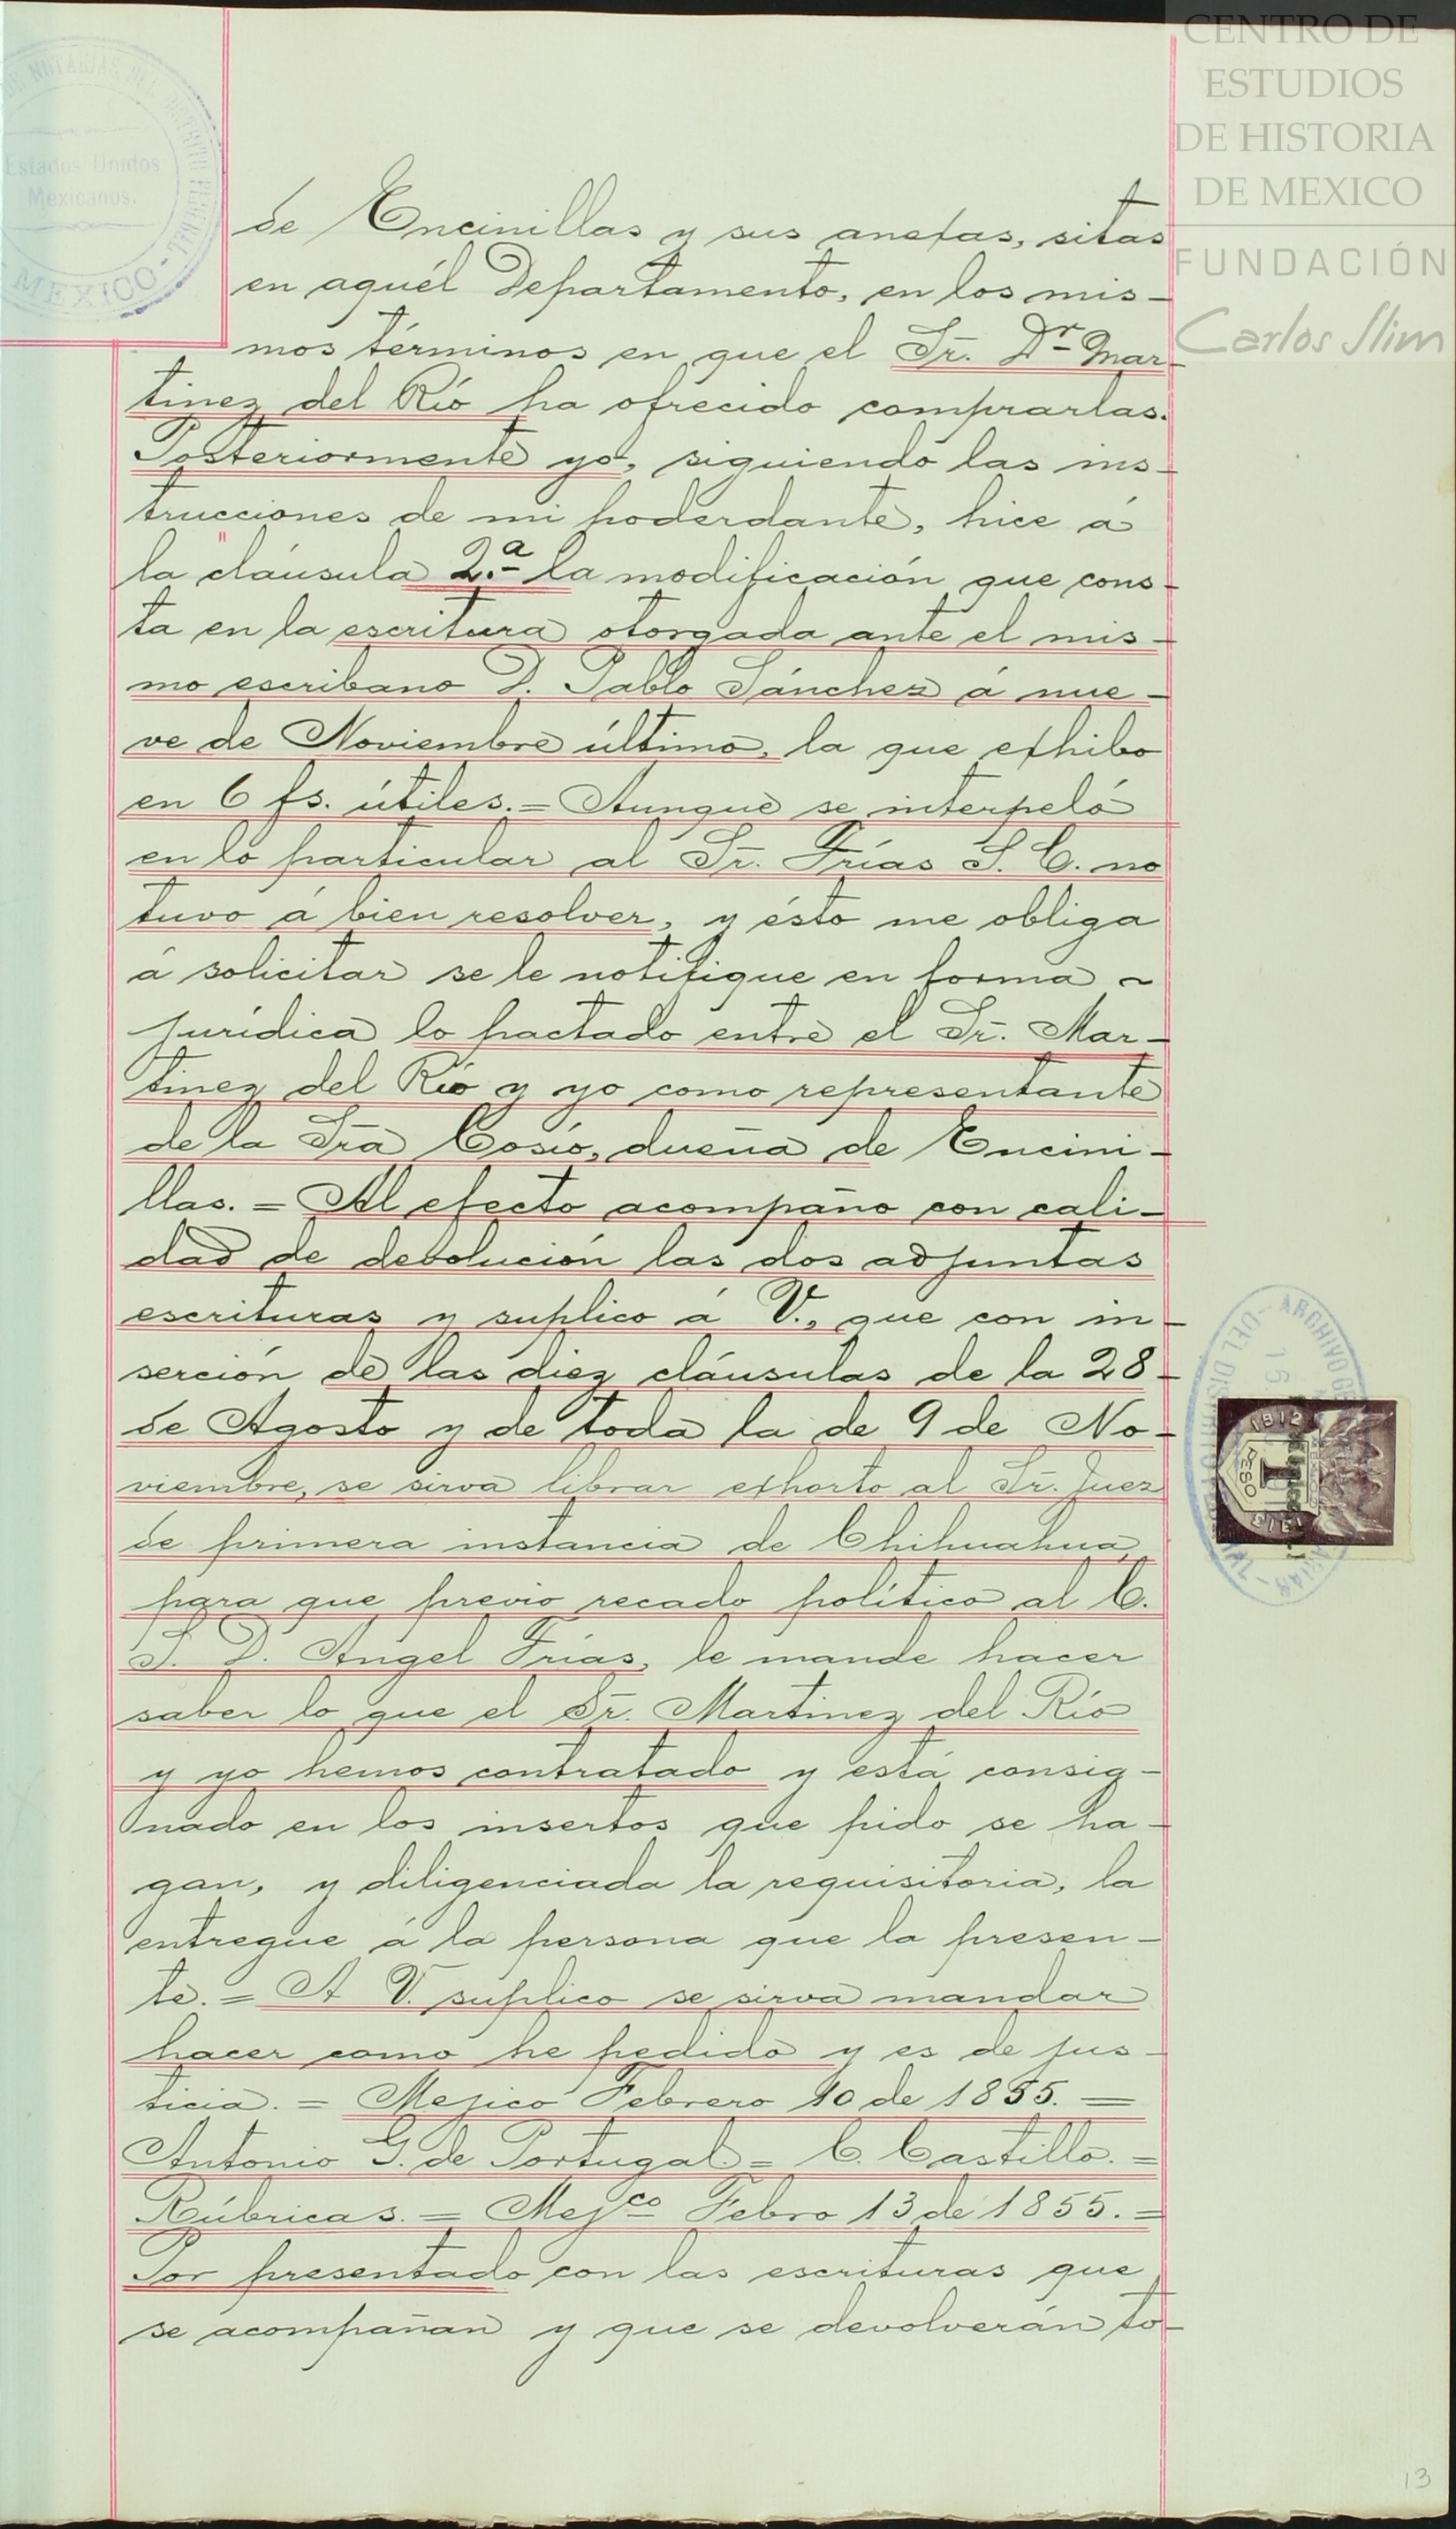 CENTRO DE
ESTUDIOS
DE HISTORIA
DE MEXICO
FUNDACIÓN
Carlos Slim
DE NOTARIAS DEL DISTRITO FEDERAL
Estados Unidos
Mexicanos.
MEXICO
de Encinillas y sus anexas, sitas
en aquél Departamento, en los mis-
mos términos en que el Sr. Dr. Mar-
tinez del Río ha ofrecido comprarlas.
Posteriormente yo, siguiendo las ins-
trucciones de mi poderdante, hice á
la cláusula 2.a la modificación que cons-
ta en la escritura otorgada ante el mis-
mo escribano D. Pablo Sánchez á nue-
ve de Noviembre último, la que exhibo
en 6 fs. útiles.= Aunque se interpeló
en lo particular al Sr. Frías S. C. no
tuvo á bien resolver, y ésto me obliga
á solicitar se le notifique en forma ~
jurídica lo pactado entre el Sr. Mar-
tinez del Río y yo como representante
de la Sra Cosío, dueña de Encini-
llas. = Al efecto acompaño con cali-
dad de devolución las dos adjuntas
escrituras y suplico á V., que con in-
serción de las diez cláusulas de la 28-
de Agosto y de toda la de 9 de No-
viembre, se sirva librar exhorto al Sr. Juez
de primera instancia de Chihuahua,
para que previo recado político al C.
S. D. Angel Frías, le mande hacer
saber lo que el Sr. Martinez del Río
y yo hemos contratado y está consig-
nado en los insertos que pido se ha-
gan, y diligenciada la requisitoria, la
entregue á la persona que la presen-
te. = A V. suplico se sirva mandar
hacer como he pedido y es de jus-
ticia. = Mejico Febrero 10 de 1855. =
Antonio G. de Portugal. = C. Castillo. =
Rúbricas. = Mejco Febro 13 de 1855. =
Por presentado con las escrituras que
se acompañan y que se devolverán to-
1912
1913
1
PESO
13